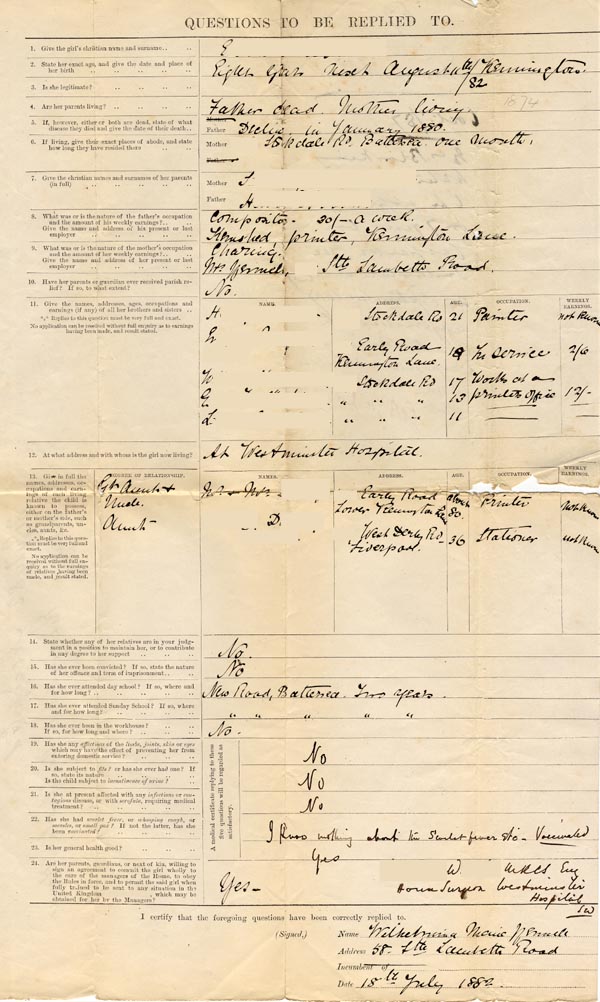 QUESTIONS TO BE REPLIED TO.
1. Give the girl's christian name and surname
2. State her exact age, and give the date and place of her birth
Eight years next August 11th/82 Kennington
3. Is she legitimate?
4. Are her parents living?
Father dead Mother living
5. If, however, either or both are dead, state of what disease they died and give the date of their death
Father Died in January 1880.
6. If living, give their exact places of abode, and state how long they have resided there
Mother Stockdale Rd. Battersea one month.
7. Give the christian names and surnames of her parents (in full)
Mother S.
Father H
8. What was or is the nature of the father's occupation and the amount of his weekly earnings?
Give the name and address of his present or last employer
Compositor - 30/- a week.
printer, Kennington Lane.
9. What was or is the nature of the mother's occupation and the amount of her weekly earnings?
Give the name and address of her present or last employer
Charing.
Sth Lambeth Road.
10. Have her parents or guardian ever received parish relief? If so, to what extent?
No.
11. Give the names, addresses, ages, occupations and earnings (if any) of all her brothers and sisters
*** Replies to this question must be very full and exact.
No application can be received without full enquiry as to earnings having been made, and result stated.
NAME. ADDRESS. AGE. OCCUPATION. WEEKLY EARNINGS.
H. Stockdale Rd 21 Painter not known
Early Road Kennington Lane. 19 In service 2/6
W Stockdale Rd 17 Works at a printers office 12/-
" " " 13
L. " " " 11
12. At what address and with whom is the girl now living?
At Westminster Hospital.
13. Give in full the names, addresses, occupations and earnings of each living relative the child is known to possess, either on the father's or mother's side, such as grandparents, uncles, aunts, &c.
*** Replies to this question must be very full and exact.
No application can be received without full enquiry as to the earnings of relatives having been made, and result stated.
DEGREE OF RELATIONSHIP. NAMES. ADDRESS. AGE. OCCUPATION. WEEKLY EARNINGS.
Gt Aunt & Uncle. Mr & Mrs Early Road Lower Kennington Lane about 80 Printer not known
Aunt D. West Derby Rd Liverpool. 36 Stationer not known
14. State whether any of her relatives are in your judgment in a position to maintain her, or to contribute in any degree to her support
No.
15. Has she ever been convicted? If so, state the nature of her offence and term of imprisonment
No
16. Has she ever attended day school? If so, where and for how long?
New Road, Battersea. Two years.
17. Has she ever attended Sunday School? If so, where and for how long?
" " " " "
18. Has she ever been in the workhouse? If so, for how long and where?
No.
A medical certificate replying to these five questions will be regarded as satisfactory.
19. Has she any affections of the limbs, joints, skin or eyes which may have the effect of preventing her from entering domestic service?
No
20. Is she subject to fits? or has she ever had one? If so, state its nature
Is the child subject to incontinence of urine?
No
21. Is she at present affected with any infectious or contagious disease, or with scrofula, requiring medical treatment?
No
22. Has she had scarlet fever, or whooping cough, or measles, or small pox? If not the latter, has she been vaccinated?
I know nothing about the Scarlet fever etc. Vaccinated
23. Is her general health good?
Yes
W. MRCS Eng
House Surgeon Westminster Hospital
SW
24. Are her parents, guardians, or next of kin, willing to sign an agreement to commit the girl wholly to the care of the managers of the Home, to obey the Rules in force, and to permit the said girl when fully trained to be sent to any situation in the United Kingdom which may be obtained for her by the Managers?
Yes -
I certify that the foregoing questions have been correctly replied to.
(Signed,) Name
Address 58. Sth Lambeth Road
Incumbent of
Date 18th July 1882.